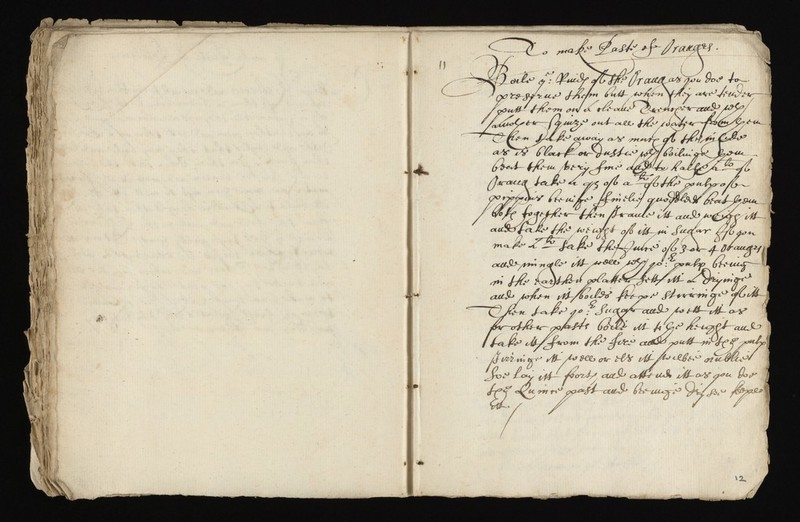 To make Paste of Oranges.
11
Boile yr. Rinds of the Orang as you doe to
preserue them butt when they are tender
putt them on a cleane Trencher and wth
another squize out all the water from them
Then take away as much of the inside
as is black or dustie wth boilinge them
beat them very fine and to halfe a lb of
Orang take a qr of a lb of the pulp of
pippins beeinge finelie beat them
both together then straine itt and weigh itt
and take the weight of itt in Sugar if you
make 2 lb take the Juice of 3 or 4 Oranges
and mingle itt well wth yor. pulp beeing
in the earthen platter sett itt a dryinge
and when itt boiles keepe stirringe of itt
Then take yor. Sugar and wett itt as
for other paste boile it to the height and
take itt from the fire and putt in the pulp
stirringe itt well or els itt wilbee
soe lay itt forth and attend itt as you doe
the Quince past and beeinge drye keepe
itt
12